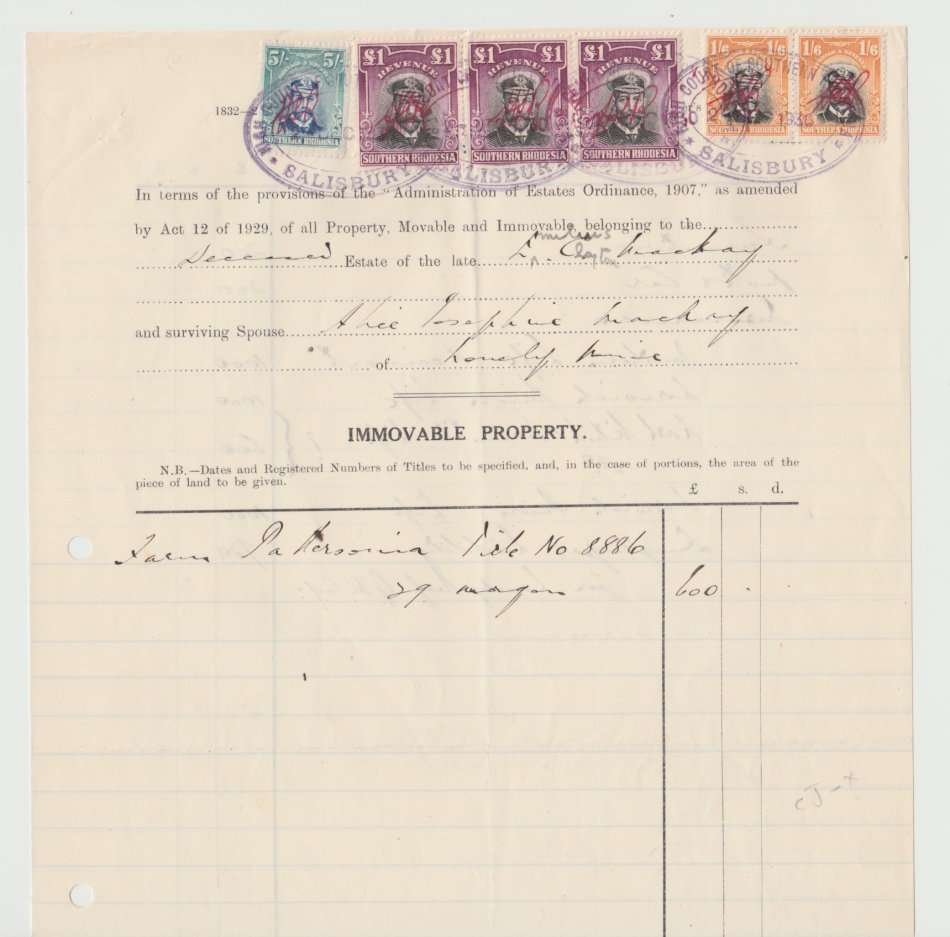 5/- 5/- £1 £1 £1 £1 £1 £1 1/6 1/6
REVENUE REVENUE REVENUE
SOUTHERN RHODESIA SOUTHERN RHODESIA SOUTHERN RHODESIA SOUTHERN RHODESIA SOUTHERN RHODESIA
1832—
HIGH COURT OF SOUTHERN
1930
SALISBURY SALISBURY SALISBURY SALISBURY
In terms of the provisions of the "Administration of Estates Ordinance, 1907," as amended
by Act 12 of 1929, of all Property, Movable and Immovable, belonging to the
Clayton
Deceased Estate of the late E. Mackay
and surviving Spouse Alice Josephine Mackay
of Lonely Mine
IMMOVABLE PROPERTY.
N.B.—Dates and Registered Numbers of Titles to be specified, and, in the case of portions, the area of the
piece of land to be given.
£ s. d.
Farm Pattersonia Title No 8886
29 morgen 600